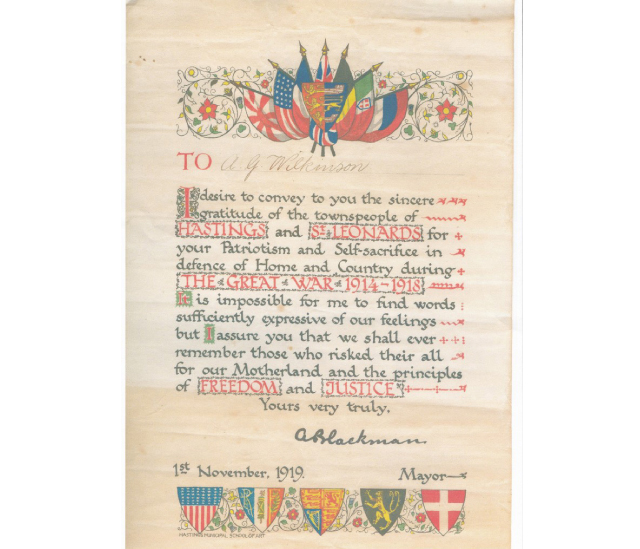 TO A. G. Wilkinson
I desire to convey to you the sincere
gratitude of the townspeople of
HASTINGS and ST LEONARDS for
your Patriotism and Self-sacrifice in
defence of Home and Country during
THE GREAT WAR 1914-1918
It is impossible for me to find words
sufficiently expressive of our feelings
but I assure you that we shall ever
remember those who risked their all
for our Motherland and the principles
of FREEDOM and JUSTICE
Yours very truly,
A Blackman
1st November, 1919. Mayor
HASTINGS MUNICIPAL SCHOOL OF ART